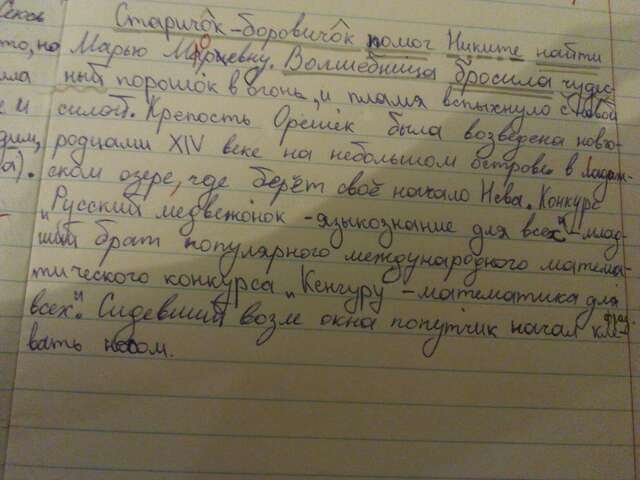 Сиюсь Старичок-боровичок помог Никите найти
то, но Марью Моревну. Волшебница бросила чудес-
ила ный порошок в огонь, и пламя вспыхнуло с новой
е и силой. Крепость Орешек была возведена новго-
дим, родцами XIV веке на небольшом острове в Ладож-
а). ском озере, где берёт своё начало Нева. Конкурс
„Русский медвежонок - языкознание для всех" - млад-
ший брат популярного международного матема-
тического конкурса „Кенгуру - математика для
всех". Сидевший возле окна попутчик начал кле-
вать носом.